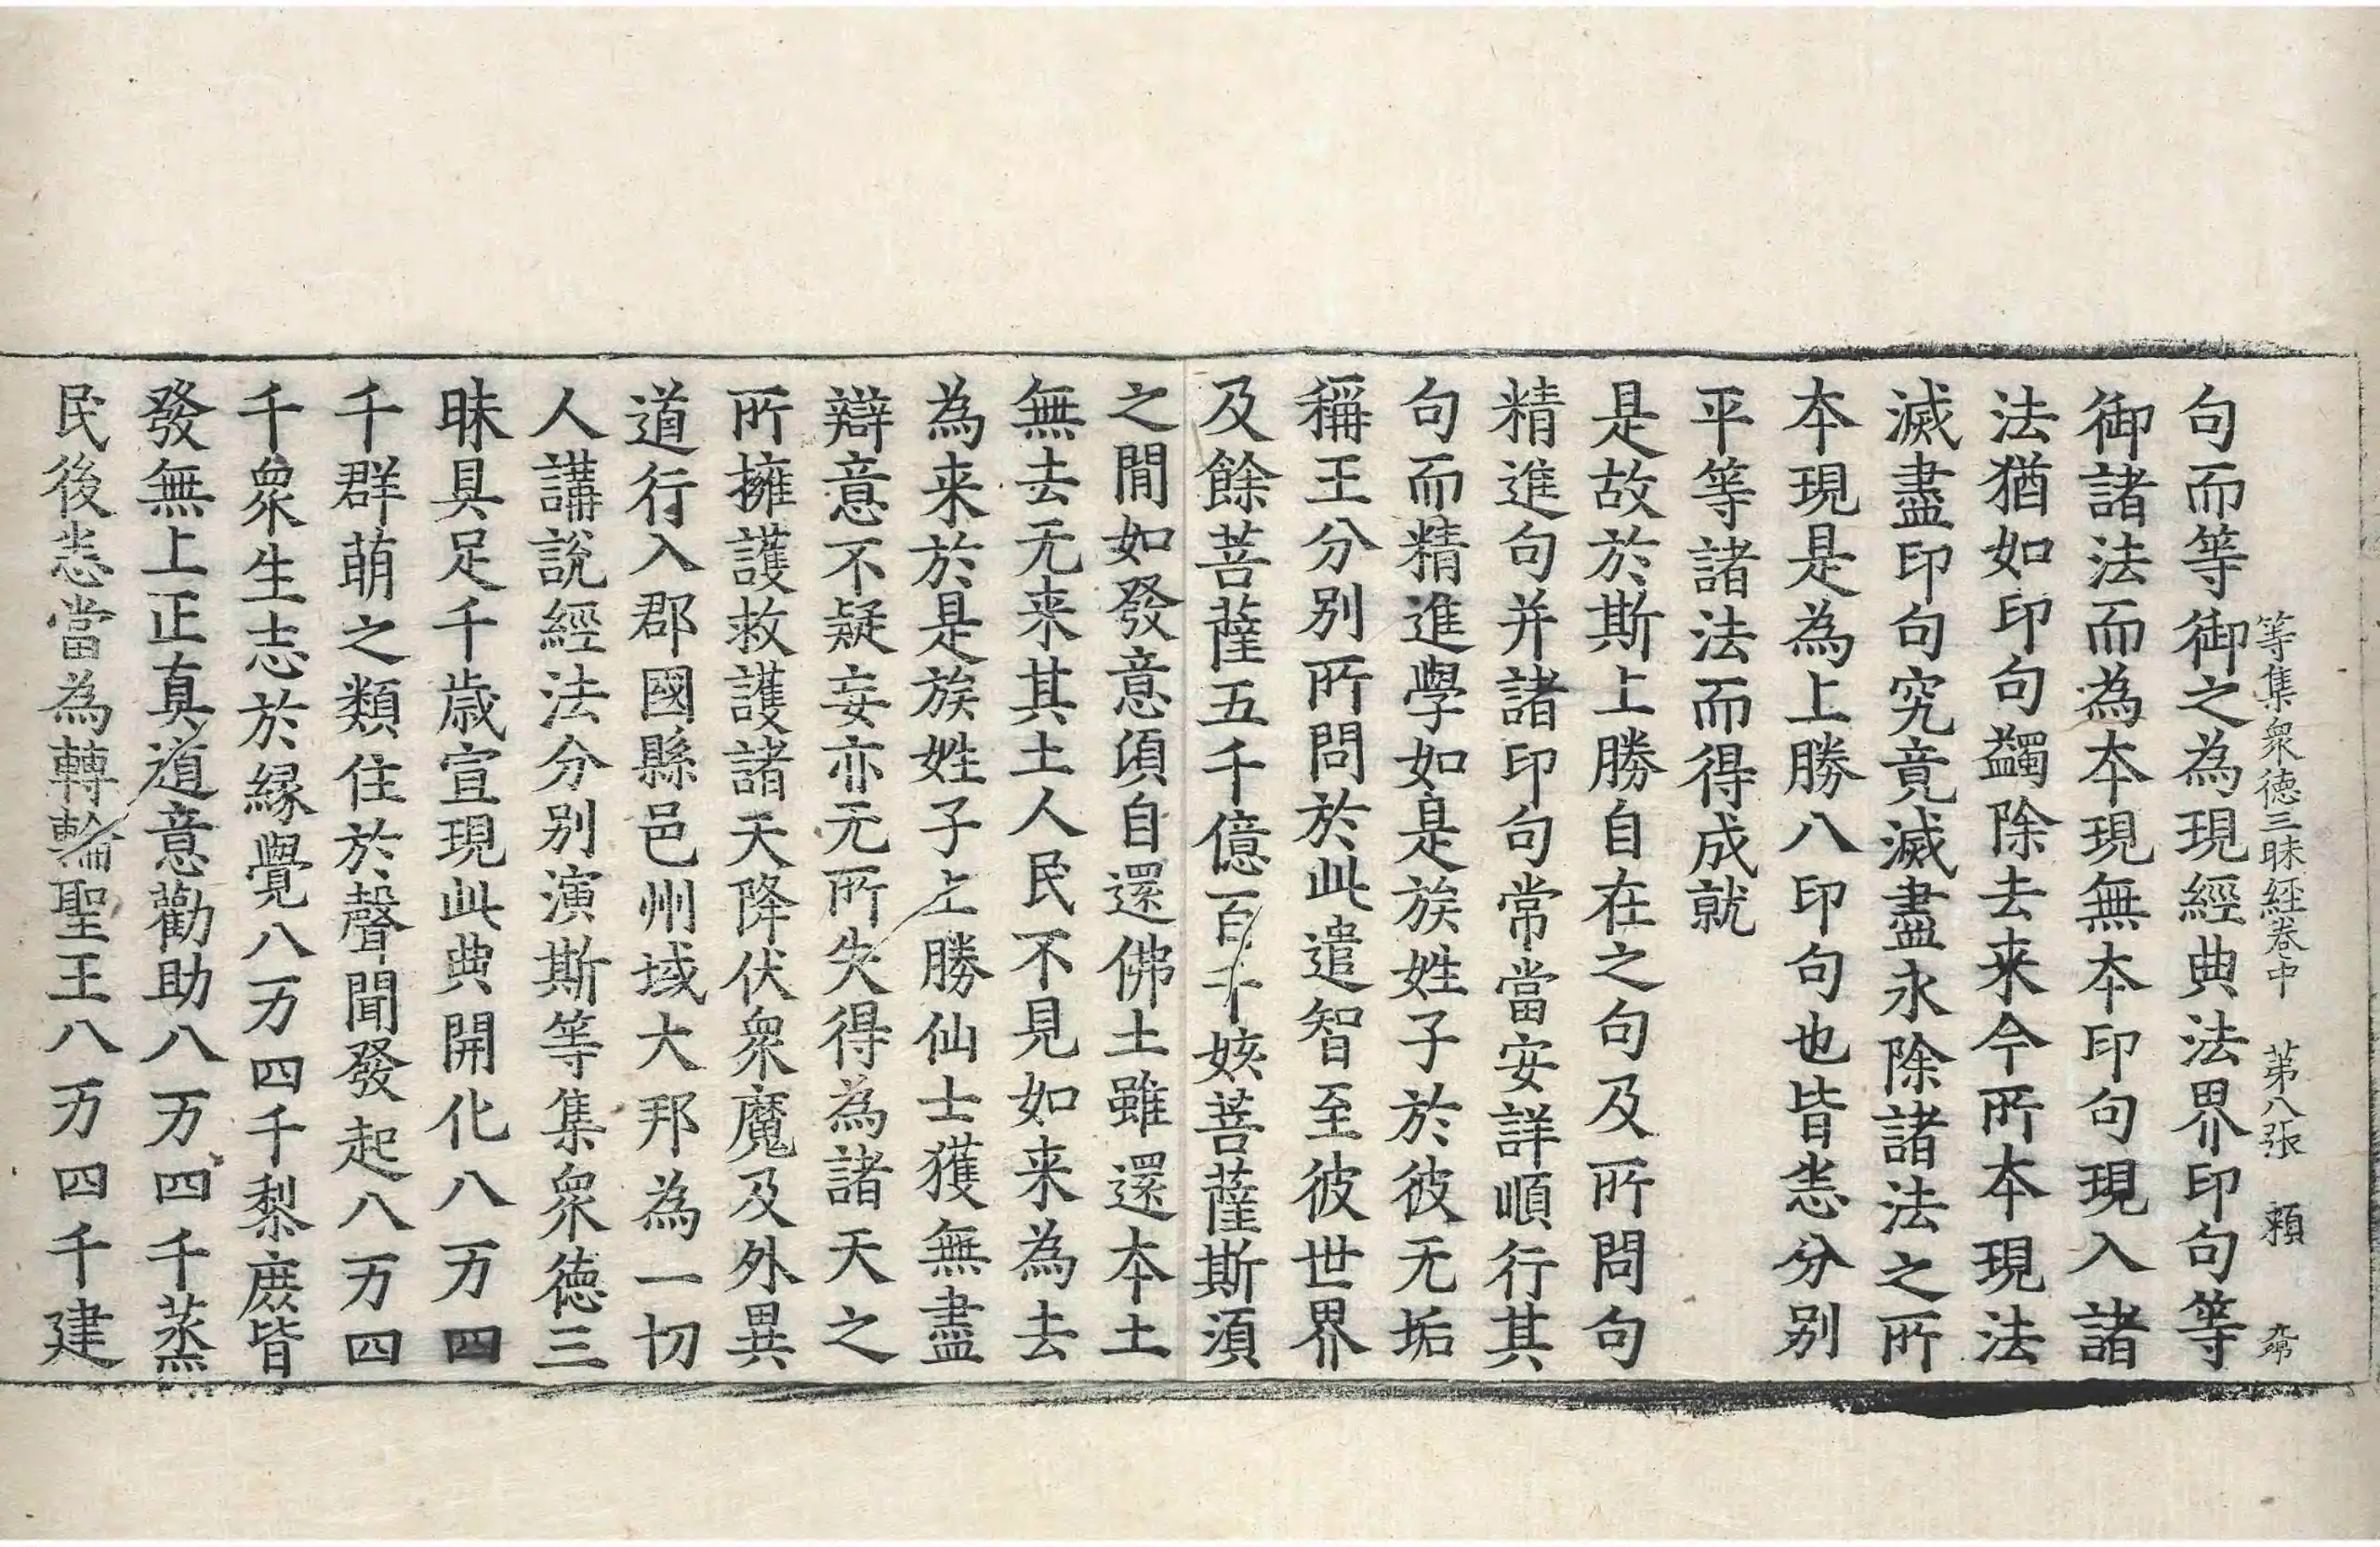 等集衆德三昧經卷中　第八張　頼　帝
句而等御之為現經典法界印句等
御諸法而為本現無本印句現入諸
法猶如印句蠲除去来今所本現法
滅盡印句究竟滅盡永除諸法之所
本現是為上勝八印句也皆悉分别
平等諸法而得成就
是故於斯上勝自在之句及所問句
精進句并諸印句常當安詳順行其
句而精進學如是族姓子於彼无垢
稱王分别所問於此遣智至彼世界
及餘菩薩五千億百千姟菩薩斯須
之間如發意須自還佛土雖還本土
無去无来其土人民不見如来為去
為来於是族姓子上勝仙士獲無盡
辯意不疑妄亦无所失得為諸天之
所擁護救護諸天降伏衆魔及外異
道行入郡國縣邑州域大邦為一切
人講說經法分别演斯等集衆德三
昧具足千歳宣現此典開化八万四
千群萌之類住於聲聞發起八万四
千衆生志於縁覺八万四千黎庶皆
發無上正真道意勸助八万四千蒸
民後悉當為轉輪聖王八万四千建